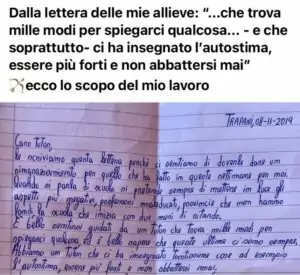 Dalla lettera delle mie allieve: “...che trova
mille modi per spiegarci qualcosa... - e che
soprattutto- ci ha insegnato l’autostima,
essere più forti e non abbattersi mai”
ecco lo scopo del mio lavoro
TRAPANI, 08-11-2019
Caro Tutor,
ti scriviamo questa lettera perché ci sentiamo di doverle dare un
ringraziamento per quello che ha fatto in queste settimane per noi.
Quando si parla di scuola si pretende sempre di mettere in luce gli
aspetti più negativi, professori maleducati, provincia che non hanno
fondi, la scuola che inizia con due mesi di ritardo.
È bello sentirsi guidati da un Tutor che trova mille modi per
spiegarci qualcosa, ed è bello sapere che queste ultime ci sono sempre.
Abbiamo un Tutor che ci ha insegnato tantissime cose ad esempio
l'autostima, essere più forti e non abbattersi mai,